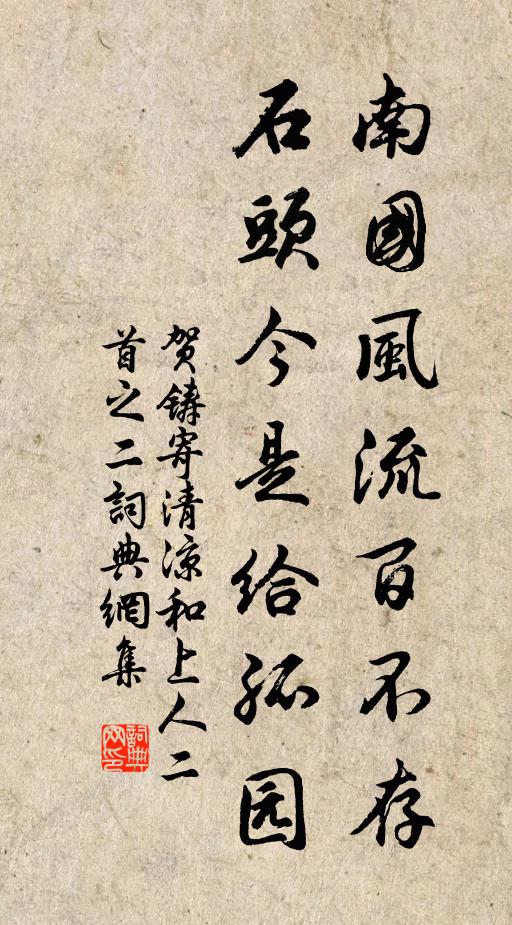 南國風流百不存
石頭今是给孤园
贺鑄寄清涼和上人二
首之二詞典網集
詞典網印